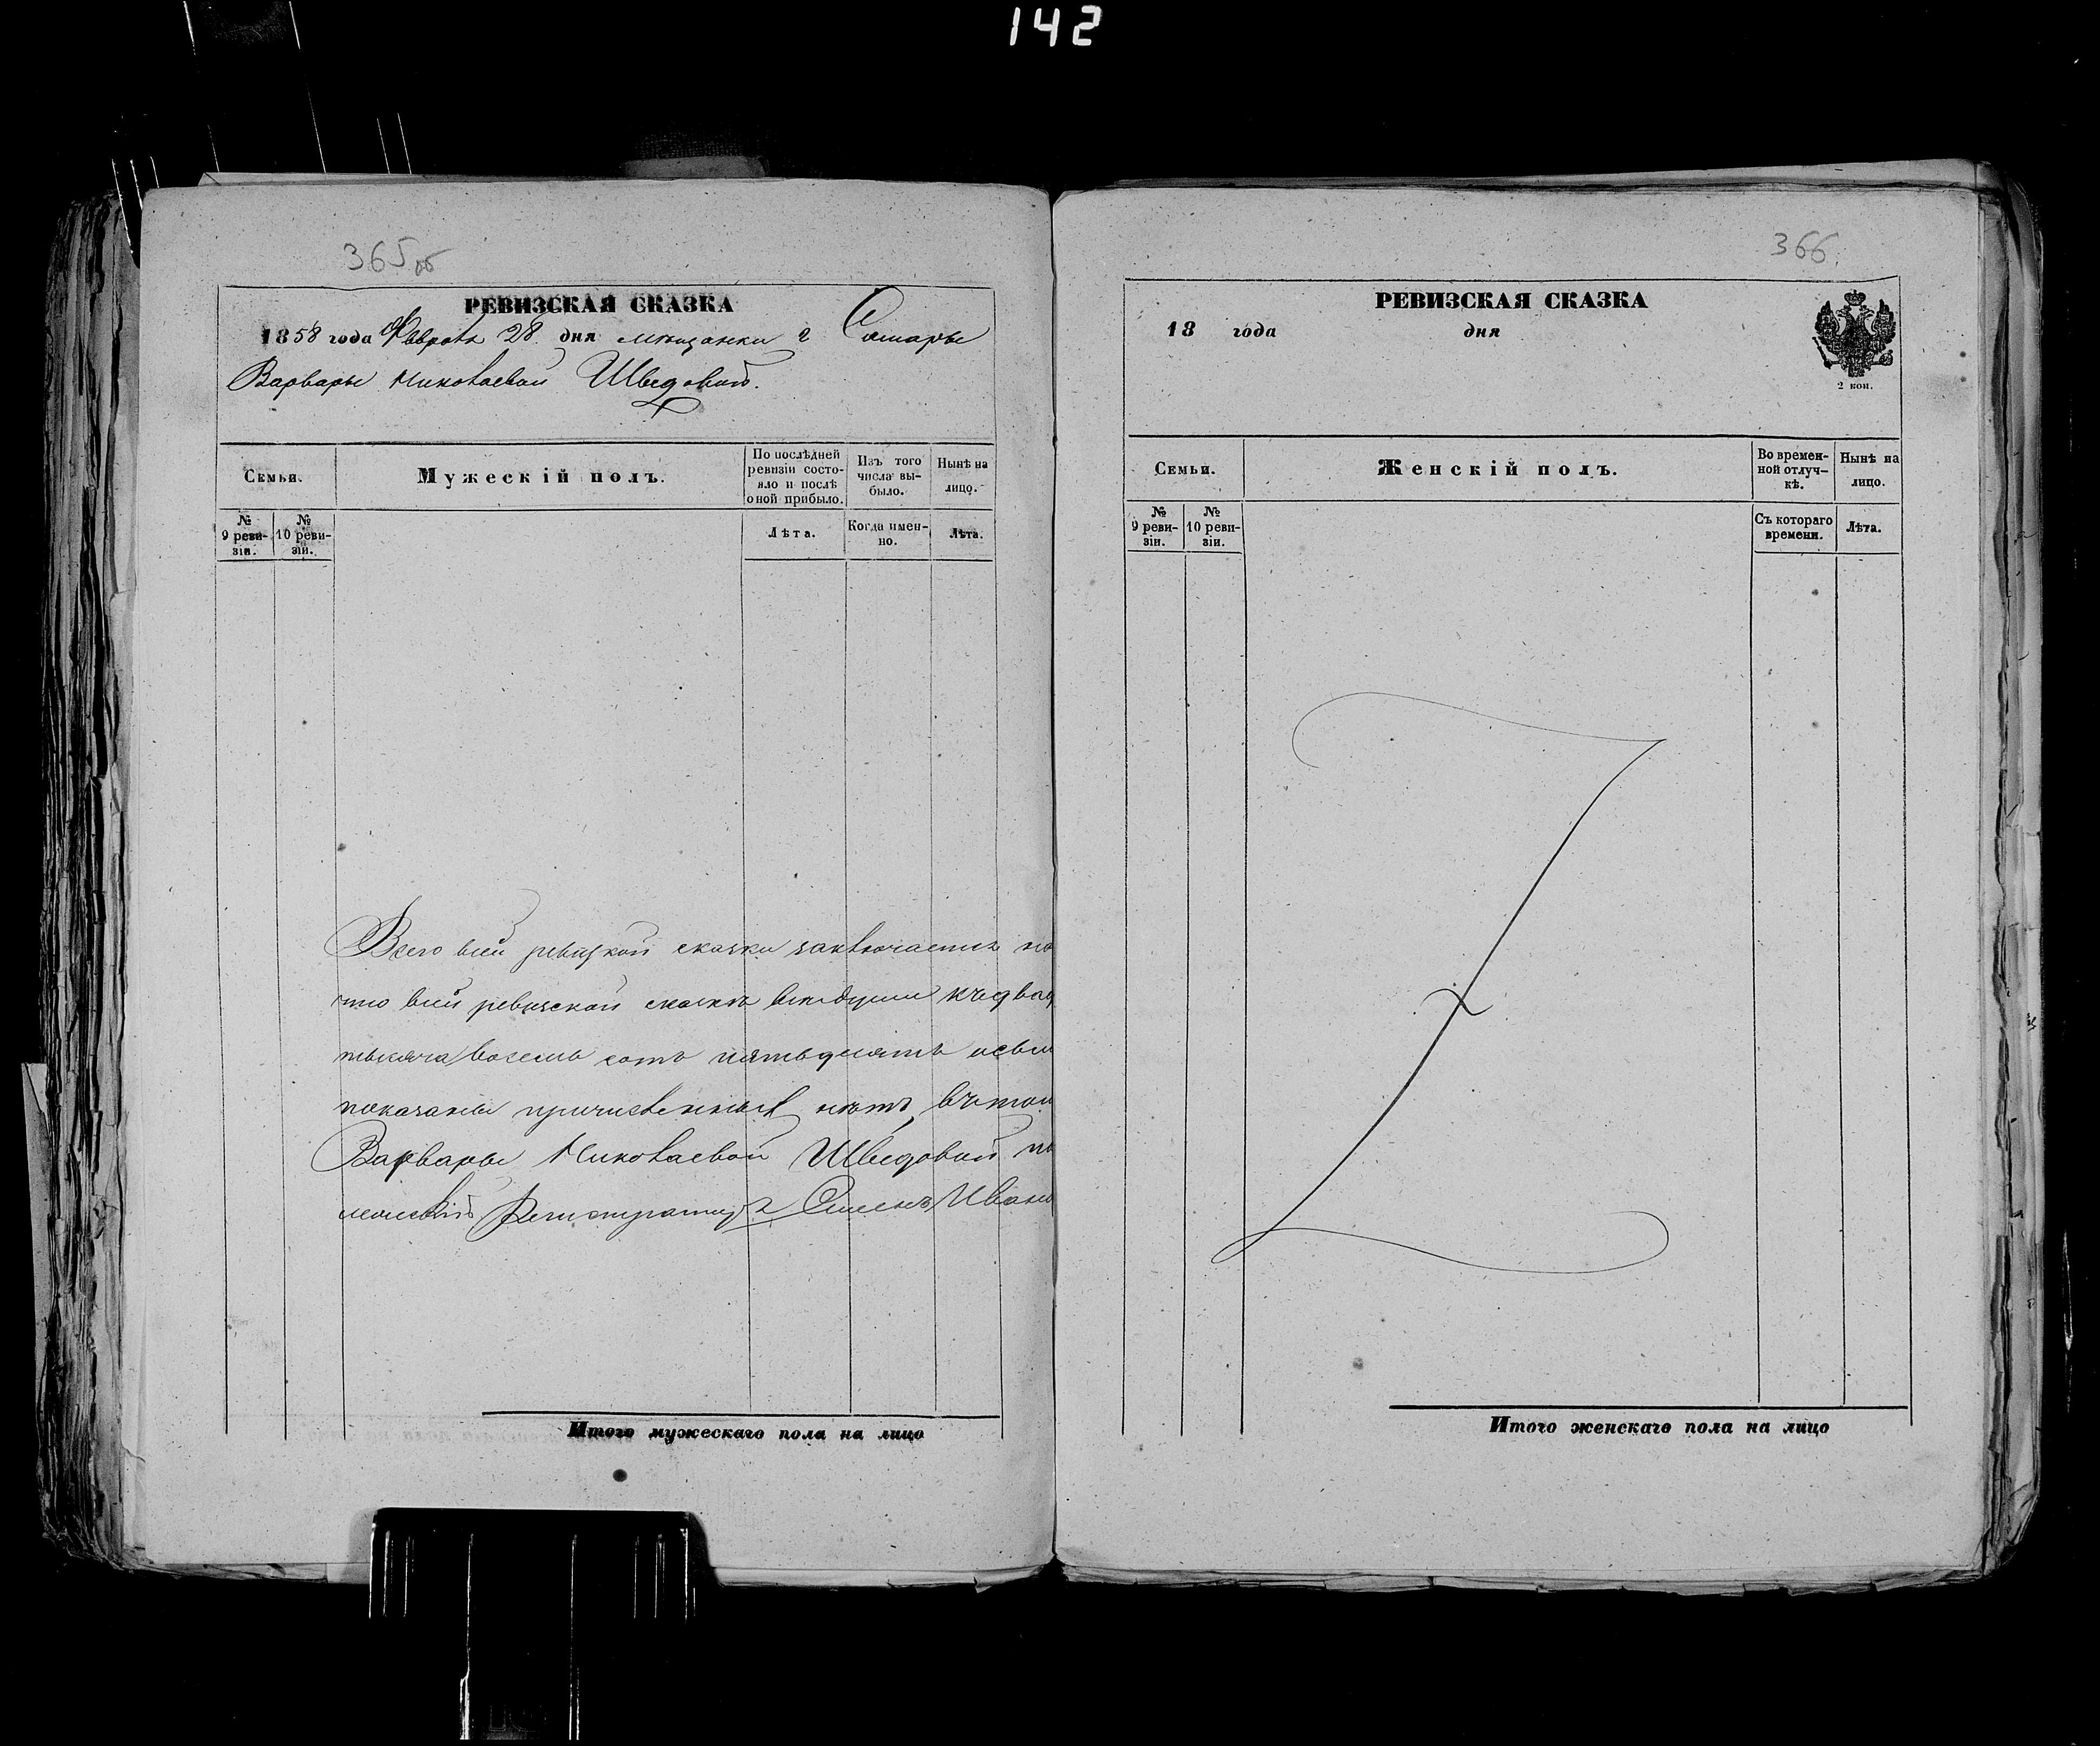 142
365 об
РЕВИЗСКАЯ СКАЗКА
1858 года Февраля 28 дня мѣщанки г Самары
Варвары Николаевой Шведовой.
Семьи.
Мужескій полъ.
По послѣдней ревизіи состояло и послѣ оной прибыло.
Изъ того числа выбыло.
Нынѣ на лицо.
№ 9 ревизіи.
№ 10 ревизіи.
Лѣта.
Когда именно.
Лѣта.
Всего всей ревизкой сказки заключается
что всей ревизской сказкѣ всѣ души
тысяча восемь сотъ пятьдесятъ осьм
показаны причисленных нѣтъ, въ том
Варвары Николаевой Шведовой по
Регистраторъ Семенъ Ивано
Итого мужескаго пола на лицо
366.
РЕВИЗСКАЯ СКАЗКА
18 года дня
2 коп.
Семьи.
Женскій полъ.
Во временной отлучкѣ.
Нынѣ на лицо.
№ 9 ревизіи.
№ 10 ревизіи.
Съ котораго времени.
Лѣта.
Итого женскаго пола на лицо